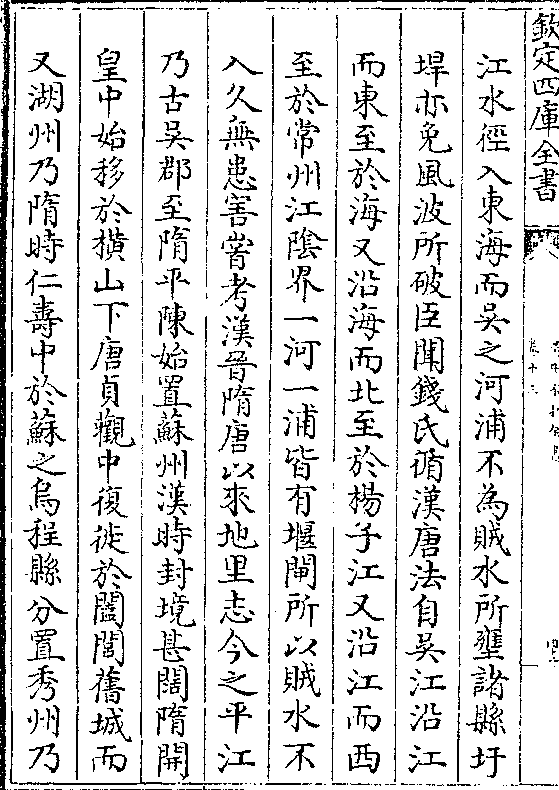 欽定四庫全書
江水徑入東海而吳之河浦不為賊水所壅諸縣圩
垾亦免風波所破臣聞錢氏循漢唐法自吳江沿江
而東至於海又沿海而北至於楊子江又沿江而西
至於常州江陰界一河一浦皆有堰閘所以賊水不
入久無患害甞考漢晉隋唐以來地里志今之平江
乃古吳郡至隋平陳始置蘇州漢時封境甚闊隋開
皇中始移於橫山下唐貞觀中復徙於闔閭舊城而
又湖州乃隋時仁壽中於蘇之烏程縣分置秀州乃